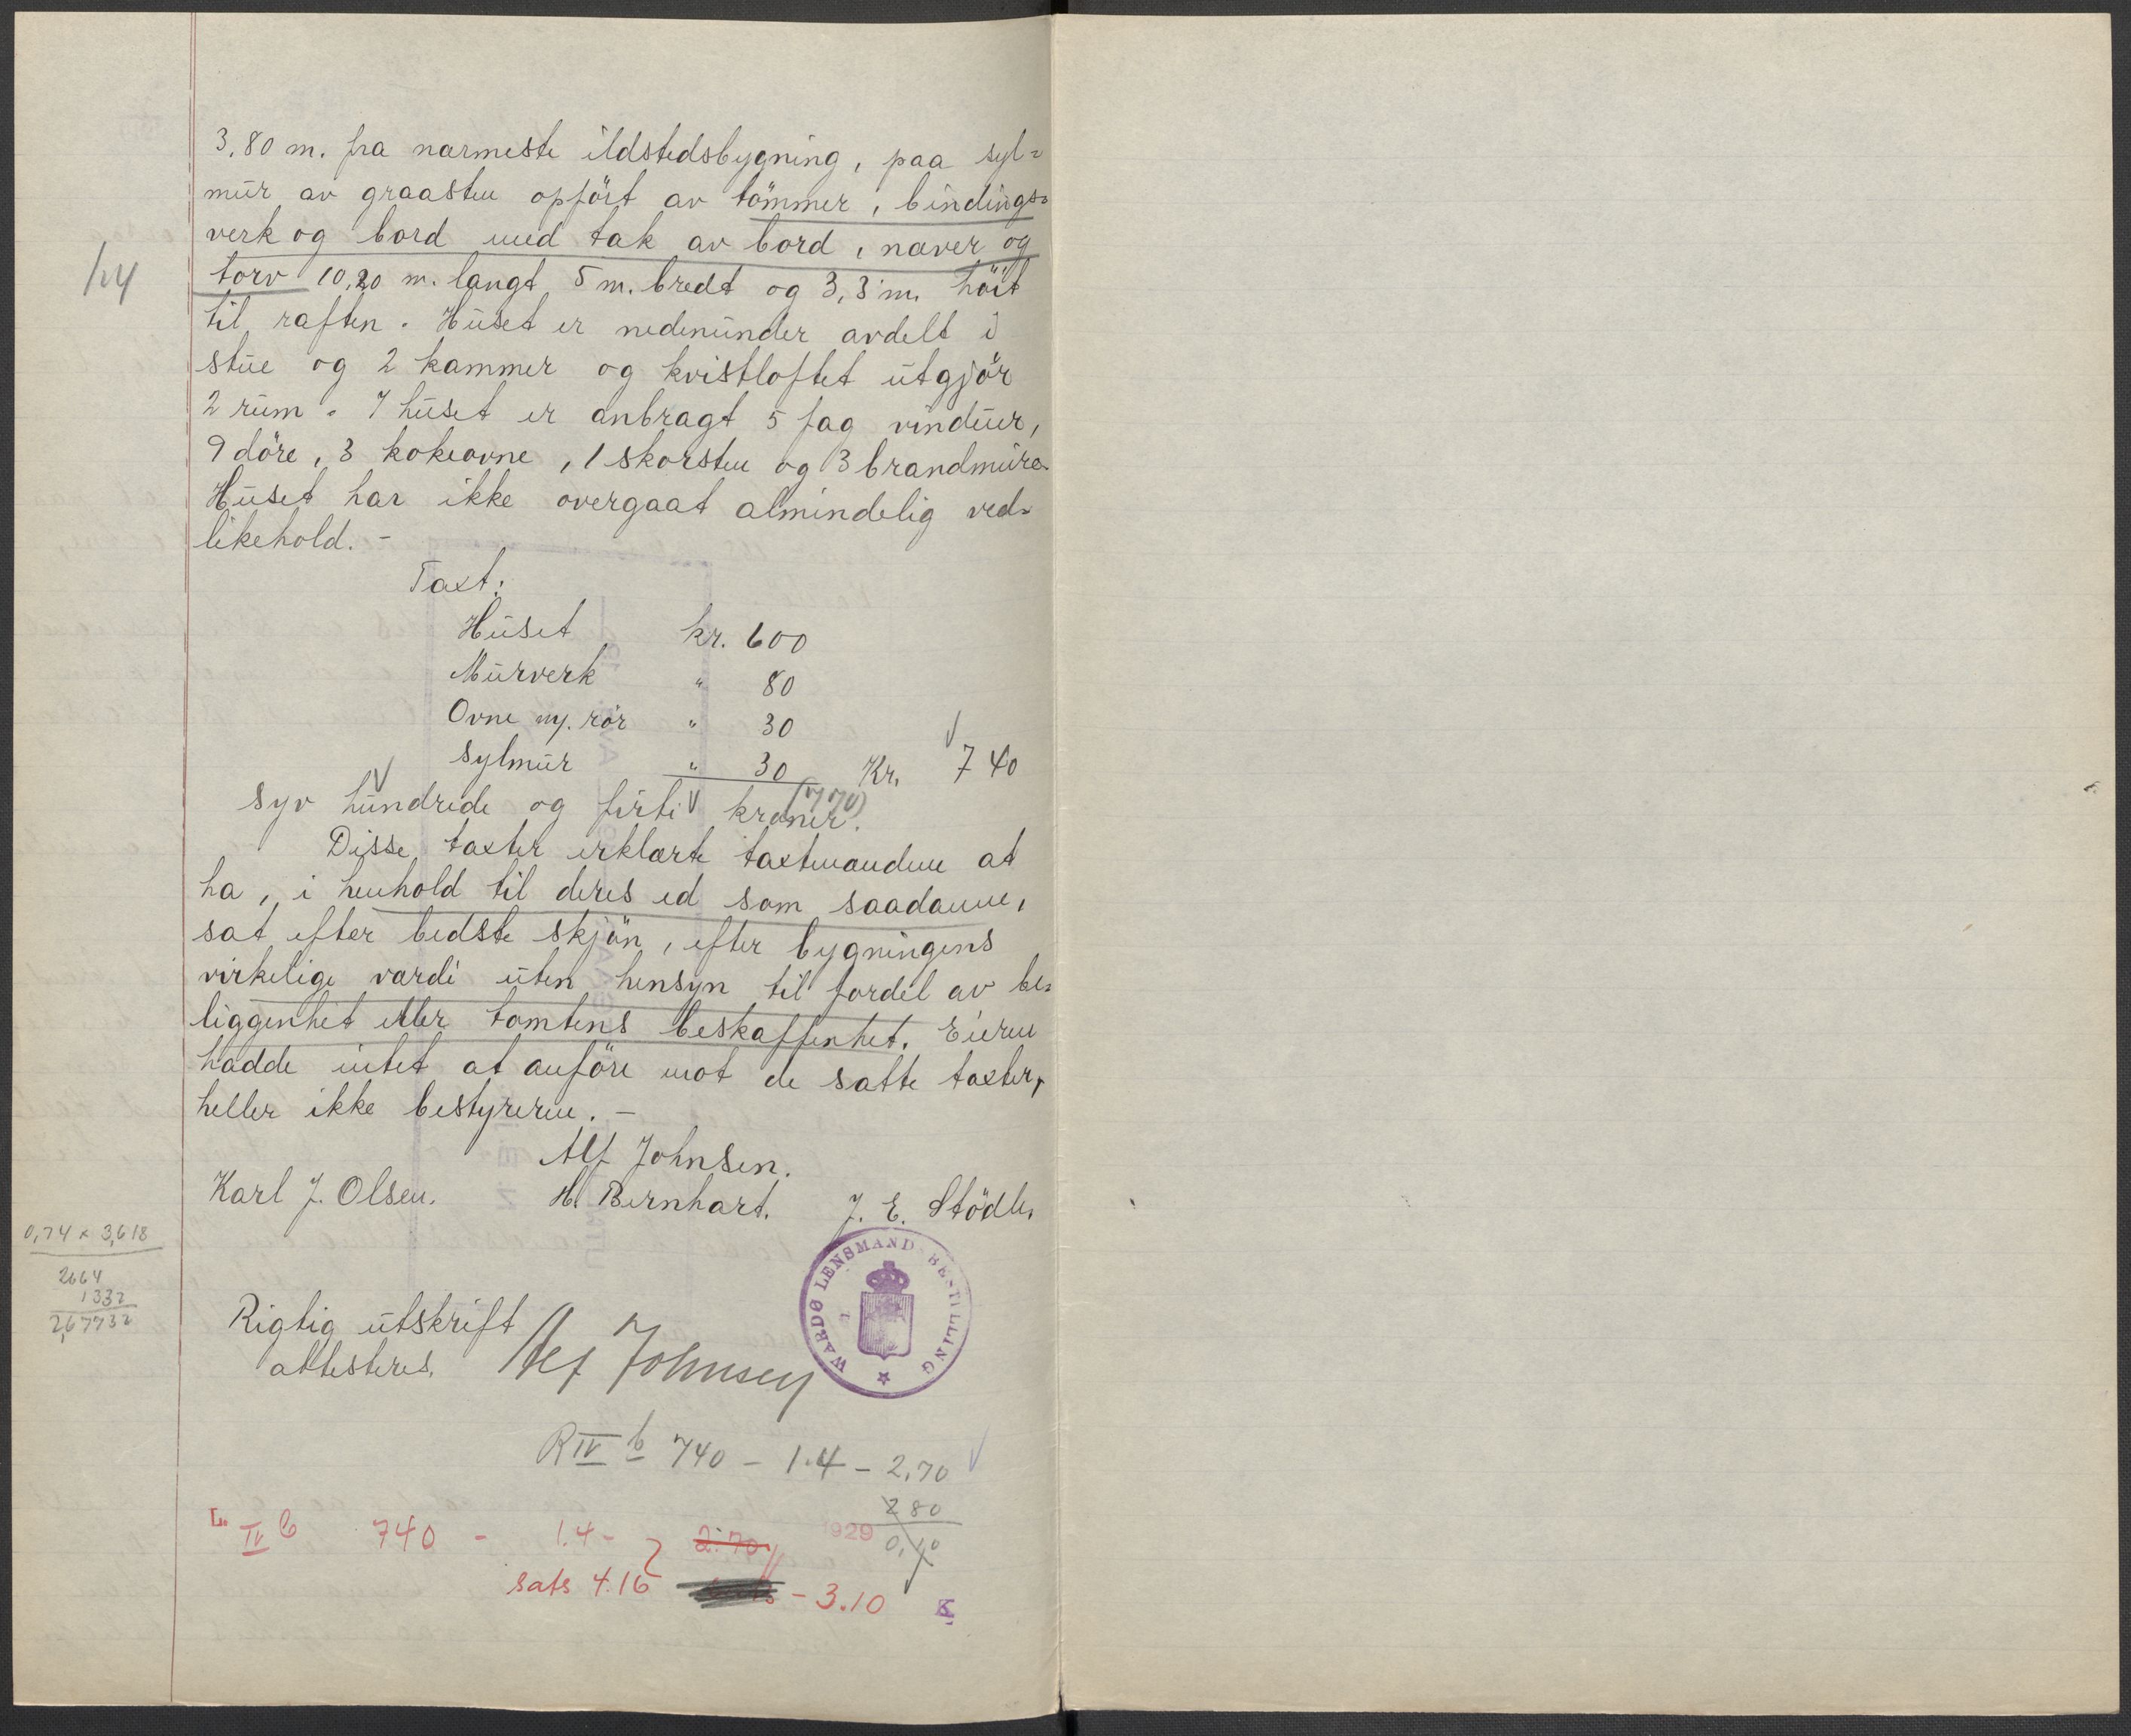 3,80 m. fra nærmeste ildstedsbygning, paa syl=
mur av graasten opført av tømmer, bindings=
verk og bord med tak av bord, næver og
torv 10,20 m. langt, 5 m. bredt og 3,3 m. høit
til raften. Huset er nedenunder avdelt i
stue og 2 kammer og kvistloftet utgjør
2 rum. I huset er anbragt 5 fag vinduer,
9 døre, 3 kokeovne, 1 skorsten og 3 brandmure.
Huset har ikke overgaat almindelig ved=
likehold. -
Taxt:
Huset kr. 600
Murverk " 80
Ovne m/. rør " 30
Sylmur " 30 Kr. 740
syv hundrede og firti kroner.
Disse taxter erklærte taxtmændene at
ha, i henhold til deres ed som saadanne,
sat efter bedste skjøn, efter bygningens
virkelige værdi uten hensyn til fordel av be=
liggenhet eller tomtens beskaffenhet. Eieren
hadde intet at anføre mot de satte taxter,
heller ikke bestyreren. -
Alf Johnsen.
Karl J. Olsen. H. Bernhart. J. E. Stödle.
0,74 x 3,618
2664
1332
2,67732
WARDØ LENSMANDSBESTILLING
Rigtig utskrift
attesteres. Alf Johnsen
R IV b 740 - 1.4 - 2,70
280
0,10
L. IV b 740 - 1.4 - 2.70 1929
sats 4.16 - 3.10 K.